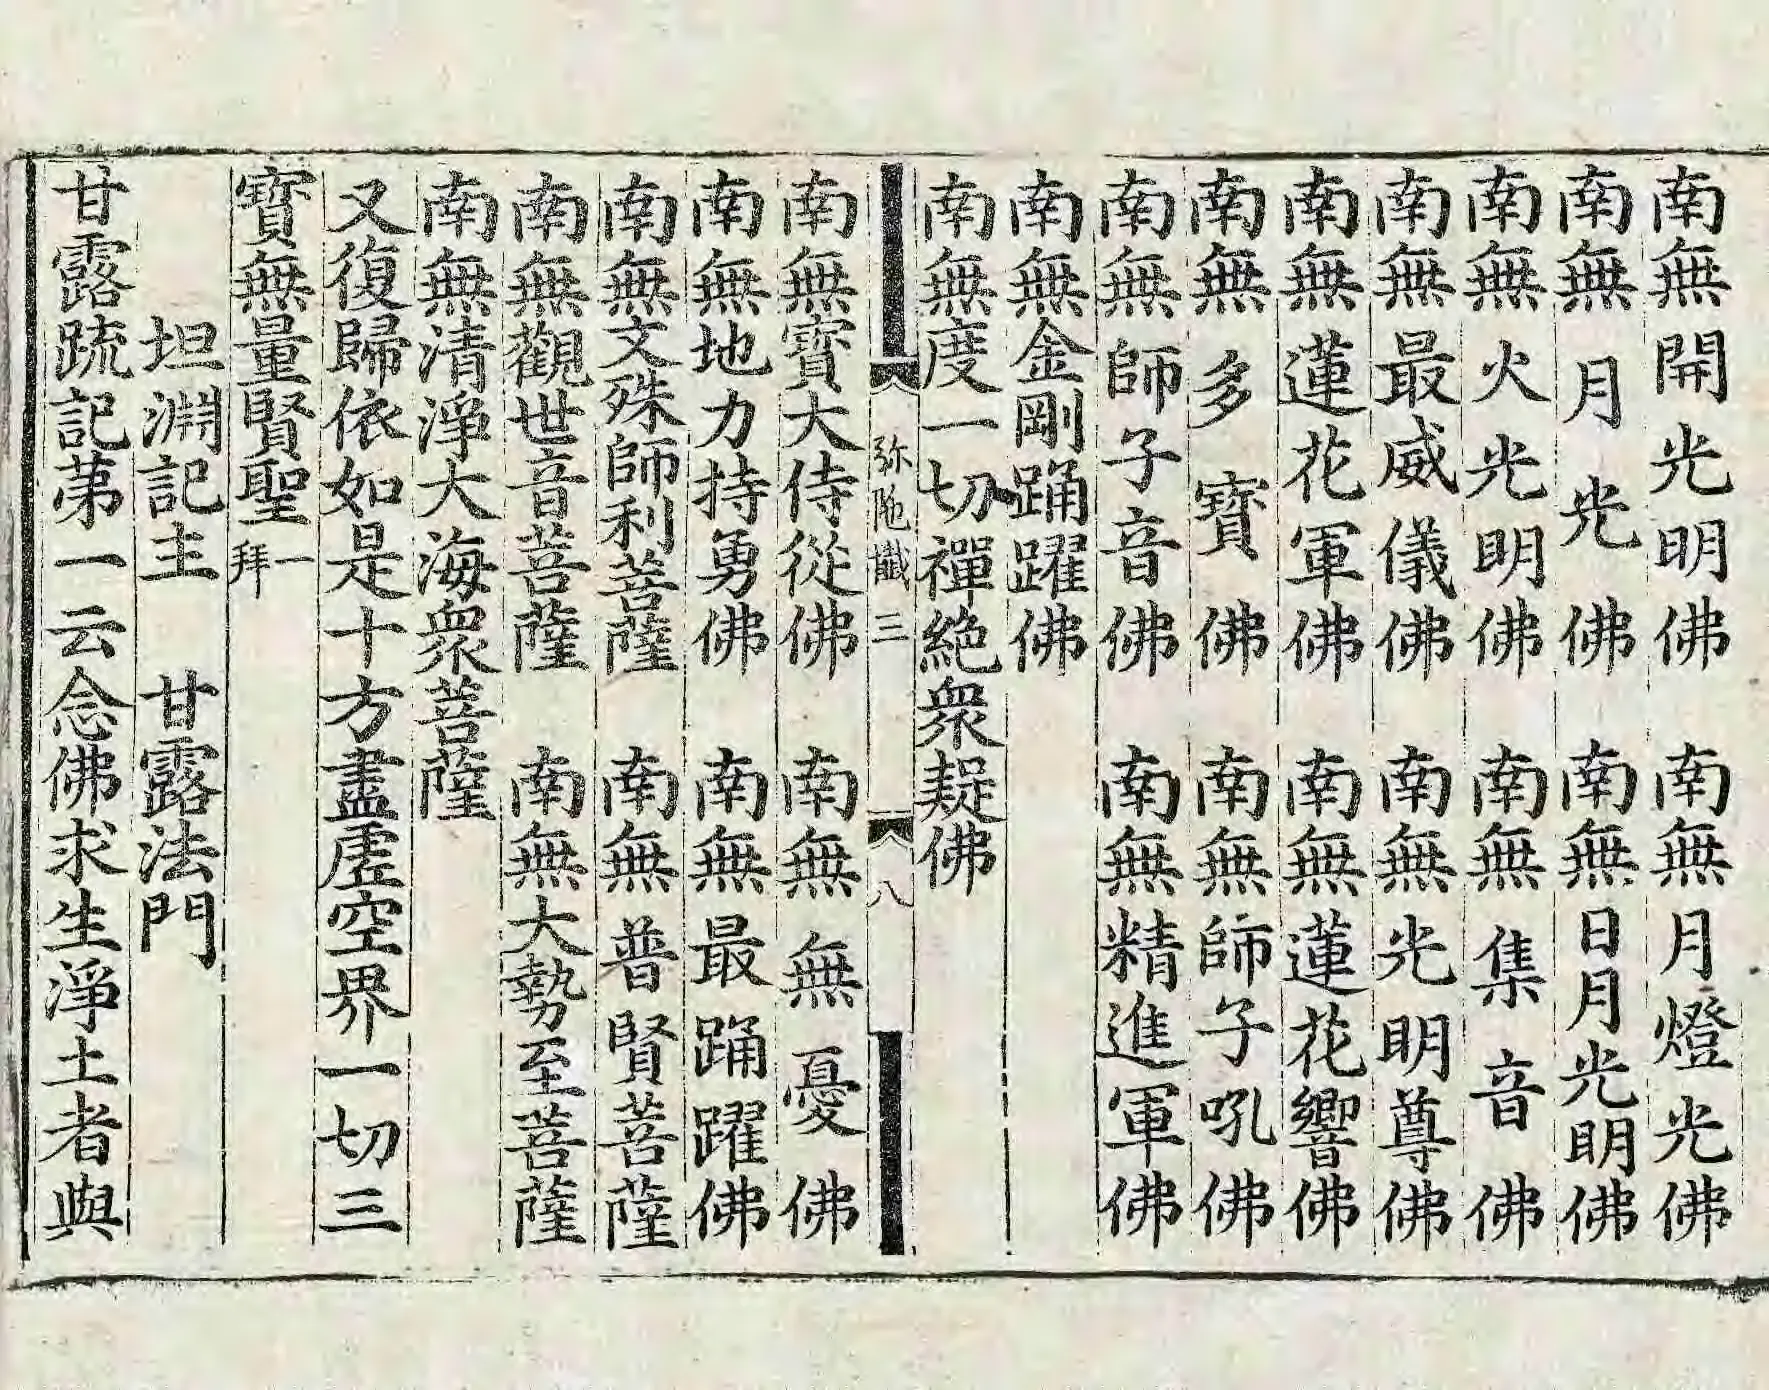 南無開光明佛　南無月燈光佛
南無月光佛　南無日月光明佛
南無火光明佛　南無集音佛
南無最威儀佛　南無光明尊佛
南無蓮花軍佛　南無蓮花響佛
南無多寶佛　南無師子吼佛
南無師子音佛　南無精進軍佛
南無金剛踊躍佛
南無度一切禪絶衆疑佛
弥陁懴三　八
南無寶大侍從佛　南無無憂佛
南無地力持勇佛　南無最踊躍佛
南無文殊師利菩薩　南無普賢菩薩
南無觀世音菩薩　南無大勢至菩薩
南無清淨大海衆菩薩
又復歸依如是十方盡虛空界一切三
寶無量賢聖一拜
坦淵記主　甘露法門
甘露䟽記苐一云念佛求生淨土者與